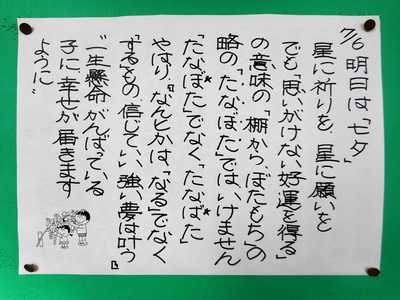 7/6 明日は「七夕」
星に祈りを、星に願いを
でも「思いがけない好運を得る」
の意味の「棚から、ぼたもち」の
略の「たなぼた」では、いけません
「たなぼた」でなく、「たなばた」
やはり、なんとかは、「なる」でなく
「するもの 信じていい、強い夢は叶う」
“一生懸命がんばっている
子に、幸せが届きます
ように”